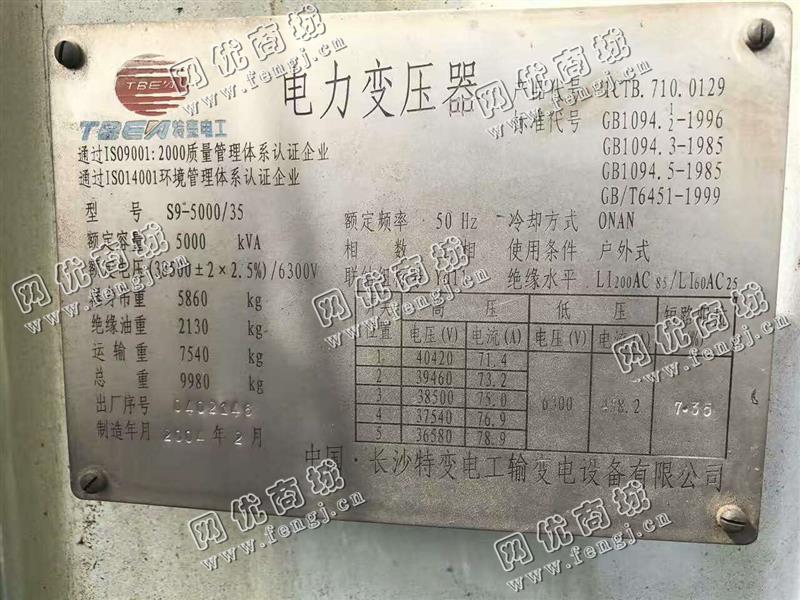 TBEA
TBEA特变电工
电力变压器
产品代号 1CTB.710.0129
标准代号 GB1094.1/2-1996
GB1094.3-1985
GB1094.5-1985
GB/T6451-1999
通过ISO9001:2000质量管理体系认证企业
通过ISO14001环境管理体系认证企业
型号 S9-5000/35
额定频率 50 Hz 冷却方式 ONAN
额定容量 5000 kVA
相数 相 使用条件 户外式
额定电压(38500±2×2.5%)/6300V
绝缘水平 LI200AC85/LI60AC25
器身重 5860 kg
绝缘油重 2130 kg
运输重 7540 kg
总重 9980 kg
出厂序号 0402246
制造年月 2004年2月
开关 高压 低压 短路阻抗
位置 电压(V) 电流(A) 电压(V) 电流
1 40420 71.4
2 39460 73.2
3 38500 75.0 6300 458.2 7.35
4 37540 76.9
5 36580 78.9
中国·长沙特变电工输变电设备有限公司
网优商城
www.fengj.cn
网优商城
www.fengj.cn
网优商城
www.fengj.cn
网优商城
www.fengj.cn
网优商城
www.fengj.cn
网优商城
www.fengj.cn
网优商城
www.fengj.cn